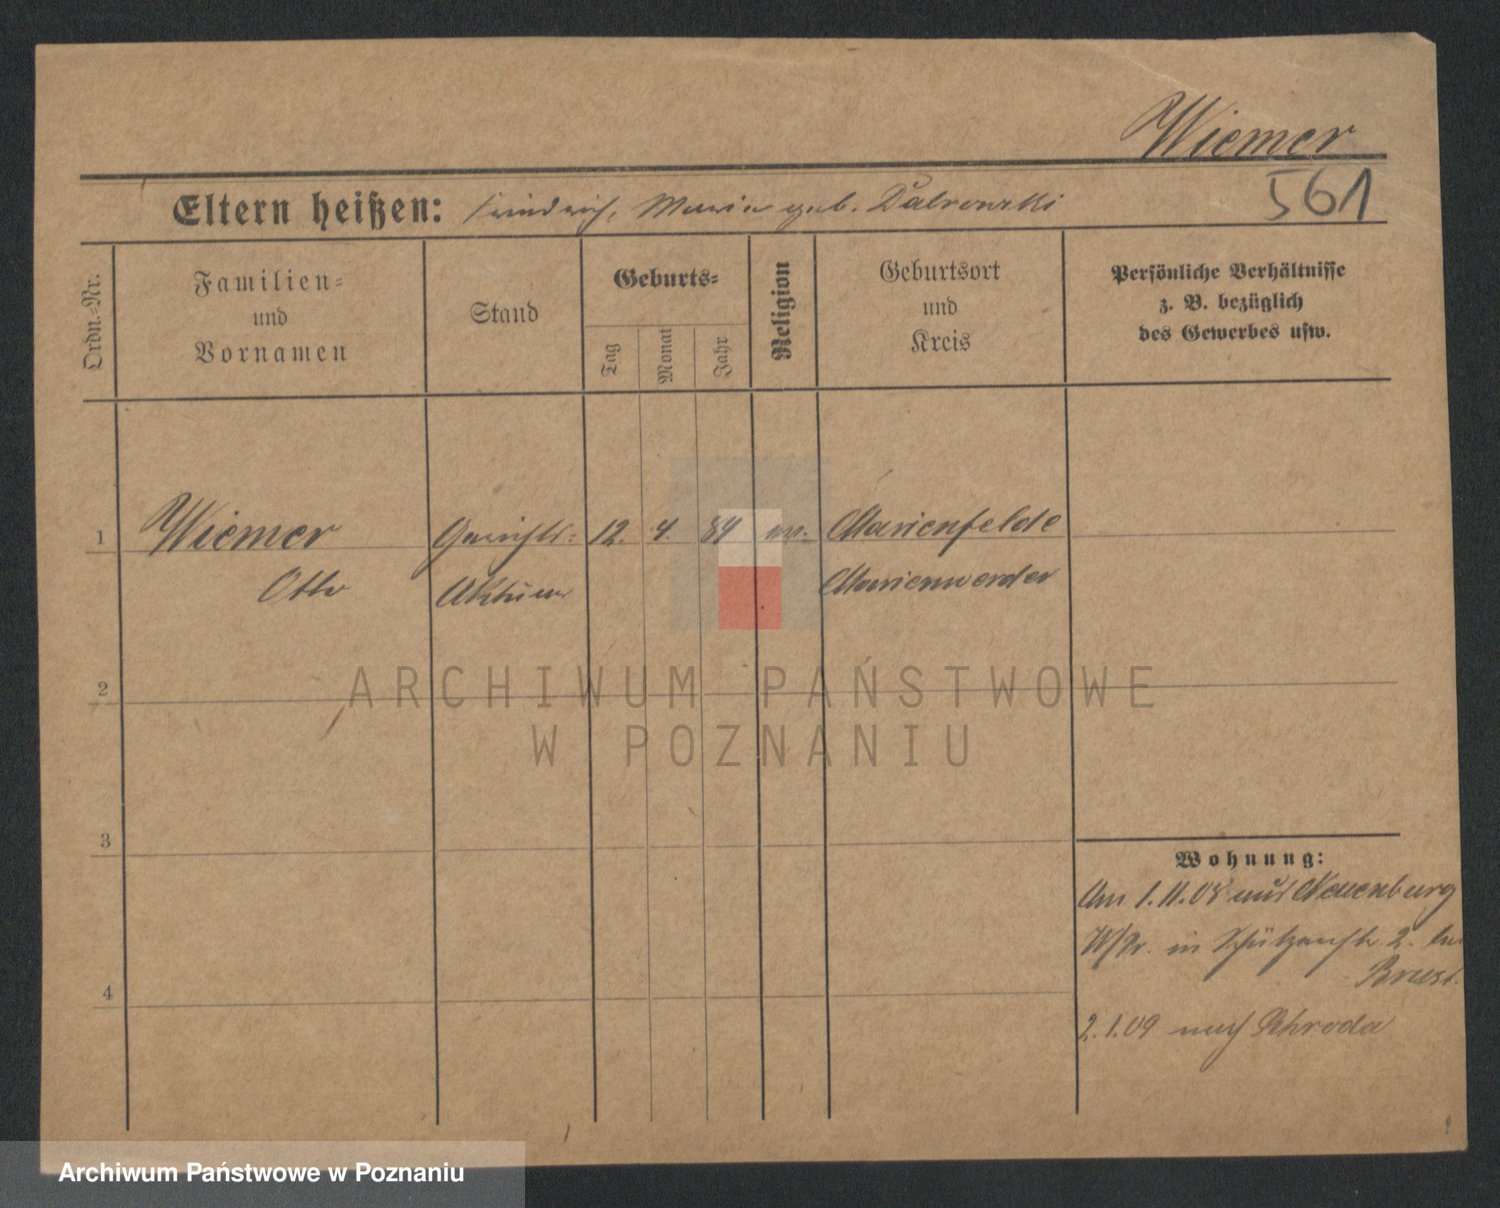 Wiemer
561
Eltern heißen: Friedrich, Maria geb. Dabrowski
Ordn.-Nr.
Familien-
und
Vornamen
Stand
Geburts-
Tag
Monat
Jahr
Religion
Geburtsort
und
Kreis
Persönliche Verhältnisse
z. B. bezüglich
des Gewerbes usw.
1 Wiemer Gerichts- 12. 4. 84 Marienfelde
Otto Aktuar Marienwerder
2
3
4
Wohnung:
Am 1.11.08 aus Neuenburg
W/Pr. in Schützenstr. 2. bei
2.1.09 nach Schroda
ARCHIWUM PAŃSTWOWE
W POZNANIU
Archiwum Państwowe w Poznaniu